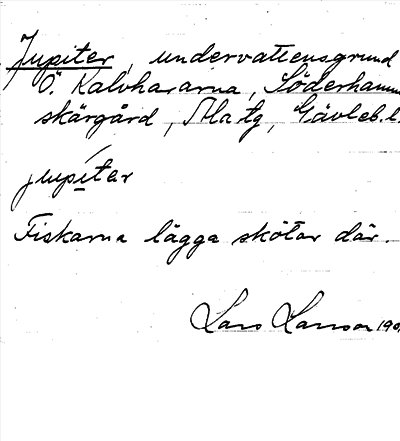 Jupiter, undervattensgrund
Ö. Kalvhararna, Söderhamns
skärgård, Hla tg, Gävleb. l.
jupítar
Fiskarna lägga skötar där.
Lars Larsson 190